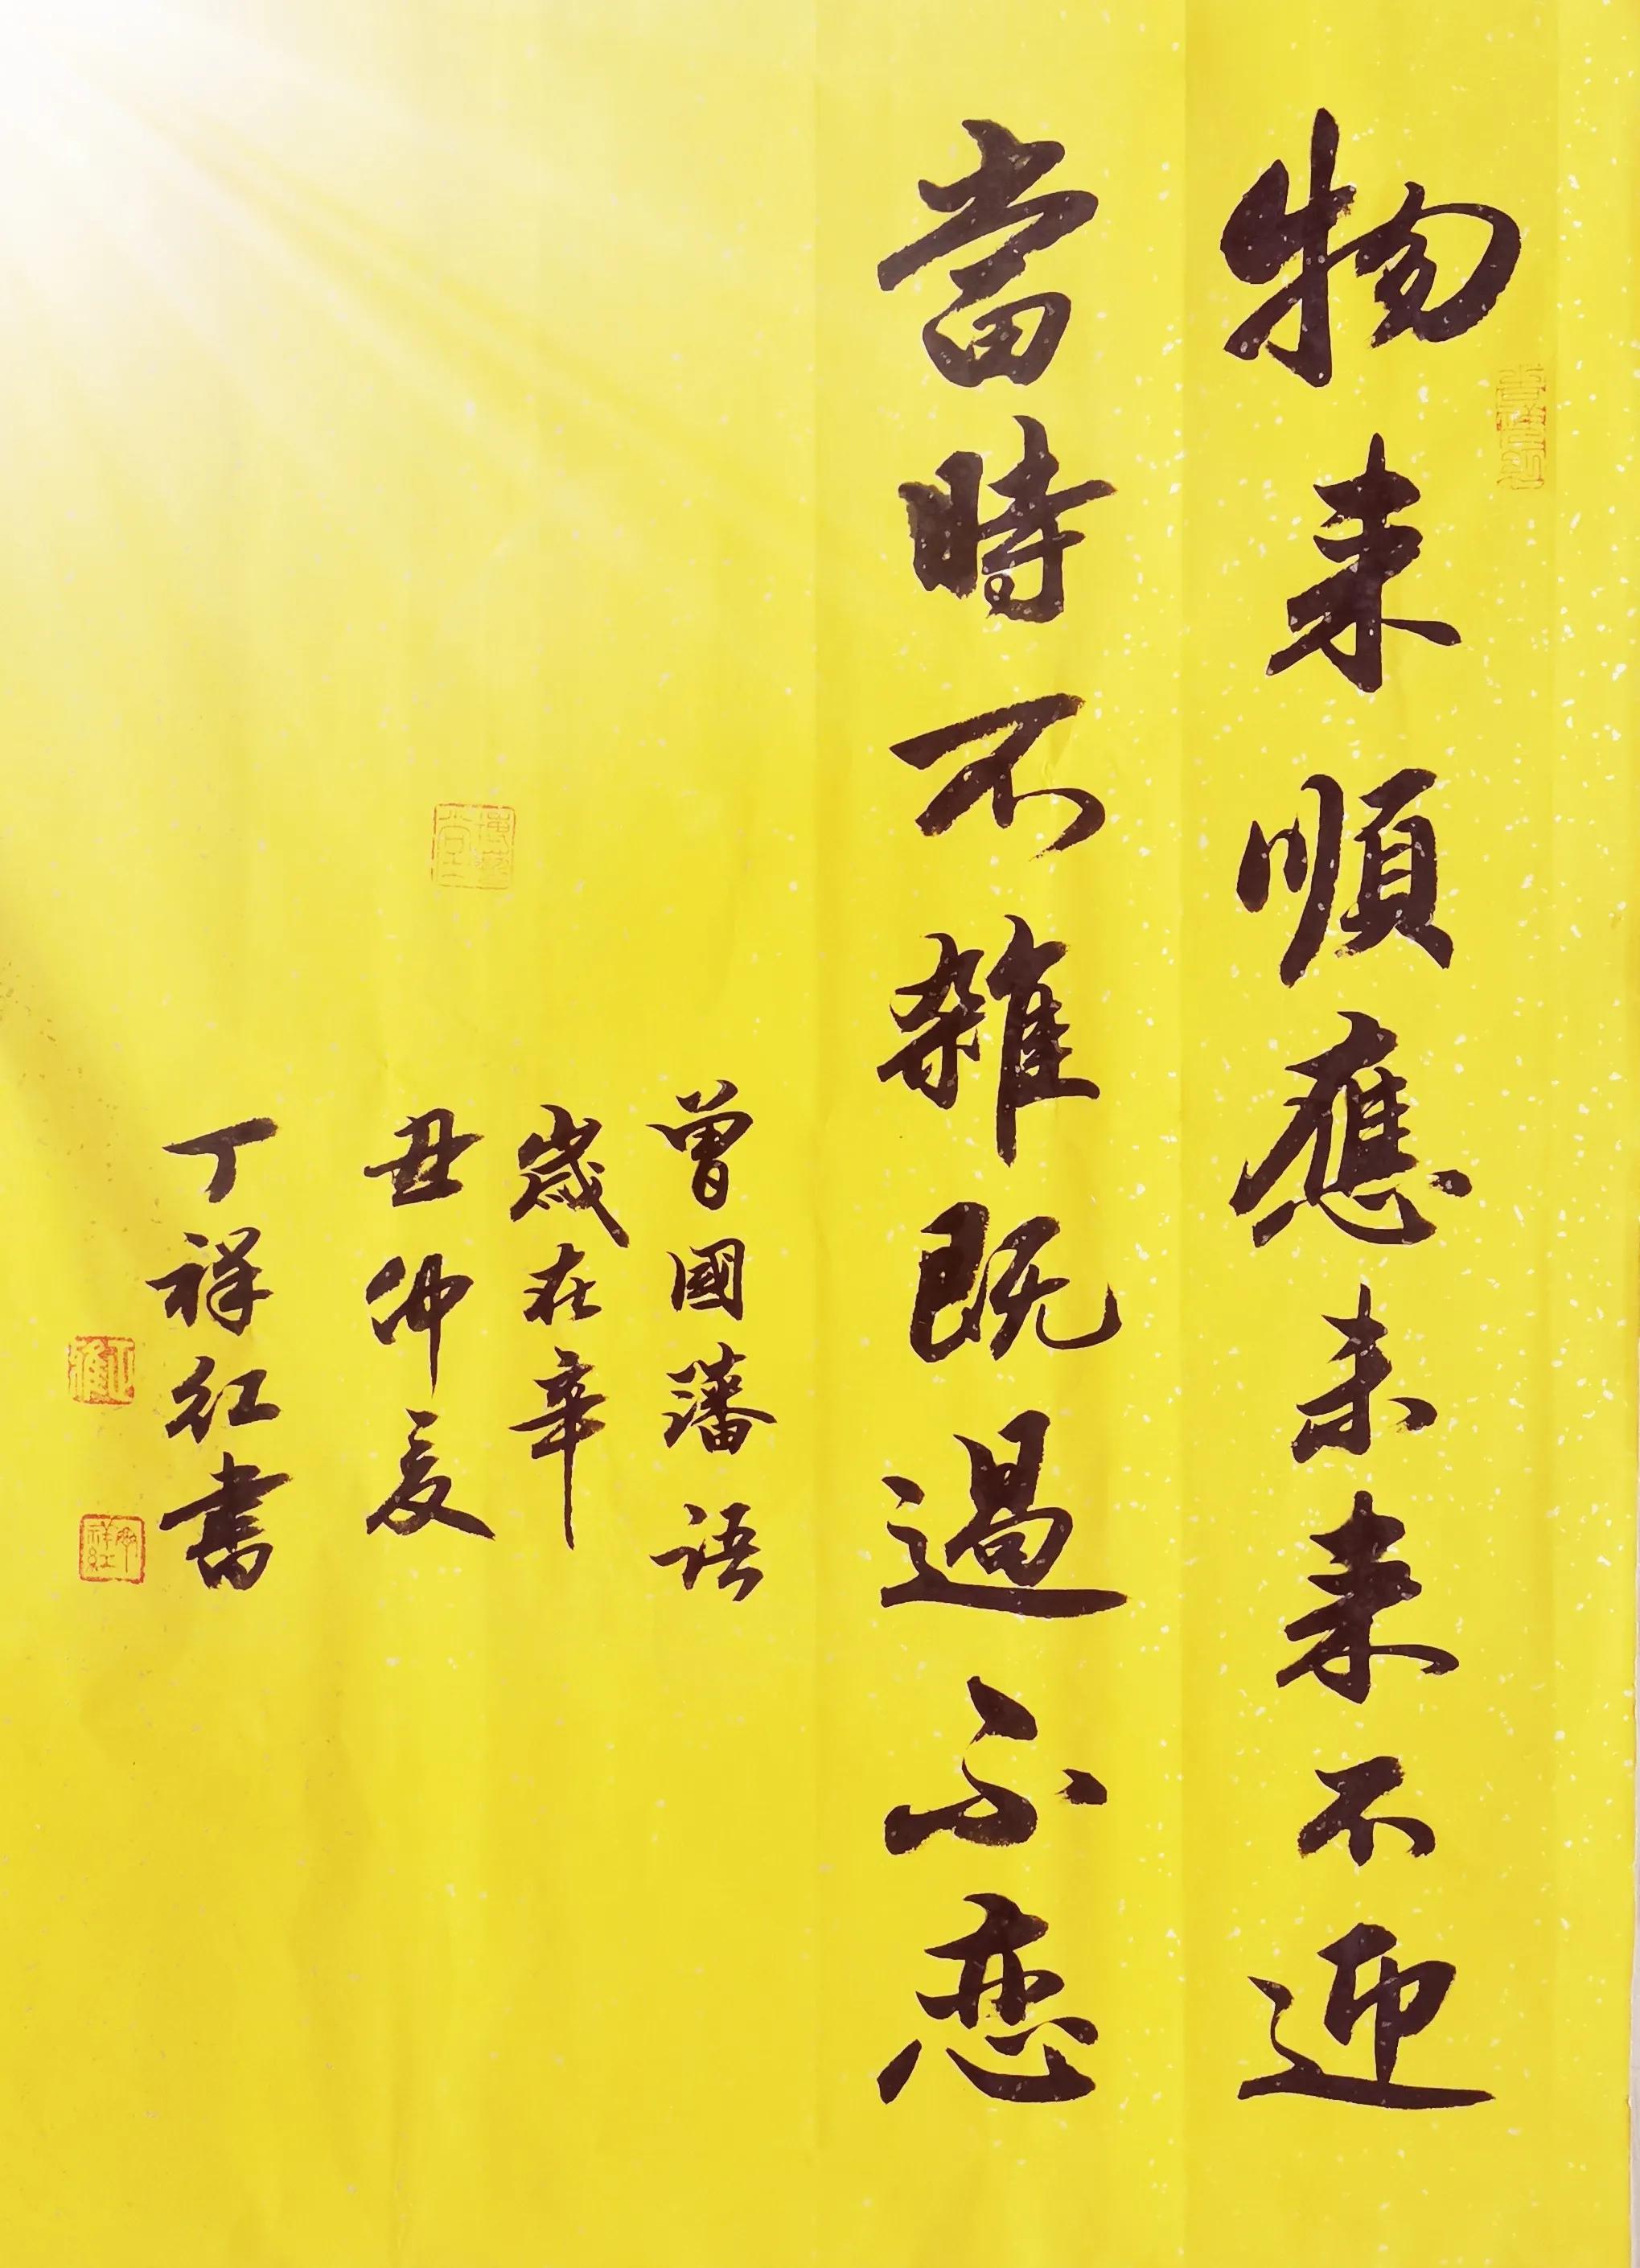 物来順應未来不迎
當時不雜既過不恋
曾國藩语
歲在辛
丑仲夏
丁祥红書